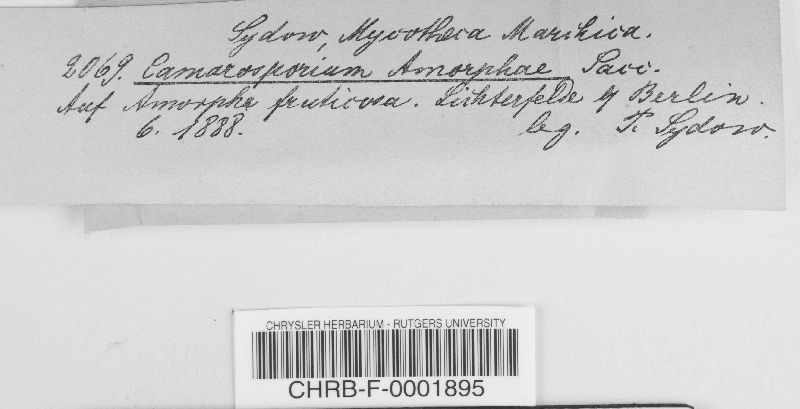 Sydow, Mycotheca Marchica.
2069. Camarosporium Amorphae Sacc.
Auf Amorpha fruticosa. Lichterfelde b/ Berlin.
6. 1888. leg. P. Sydow.
CHRYSLER HERBARIUM - RUTGERS UNIVERSITY
CHRB-F-0001895